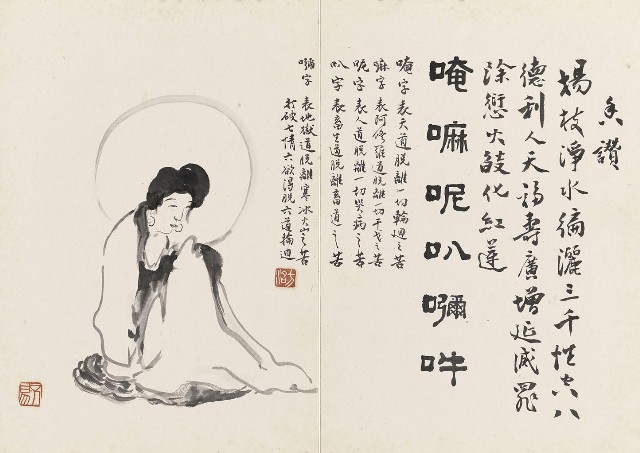 香讚
楊枝淨水徧灑三千性空八
德利人天福壽廣增延滅罪
除愆火燄化紅蓮
唵嘛呢叭吽
唵字 表天道脫離一切輪迴之苦
嘛字 表阿修羅道脫離一切干戈之苦
呢字 表人道脫離一切病之苦
叭字 表畜生道脫離畜道之苦
字 表地獄道脫離寒冰火山之苦
打破七情六欲脫六道輪迴